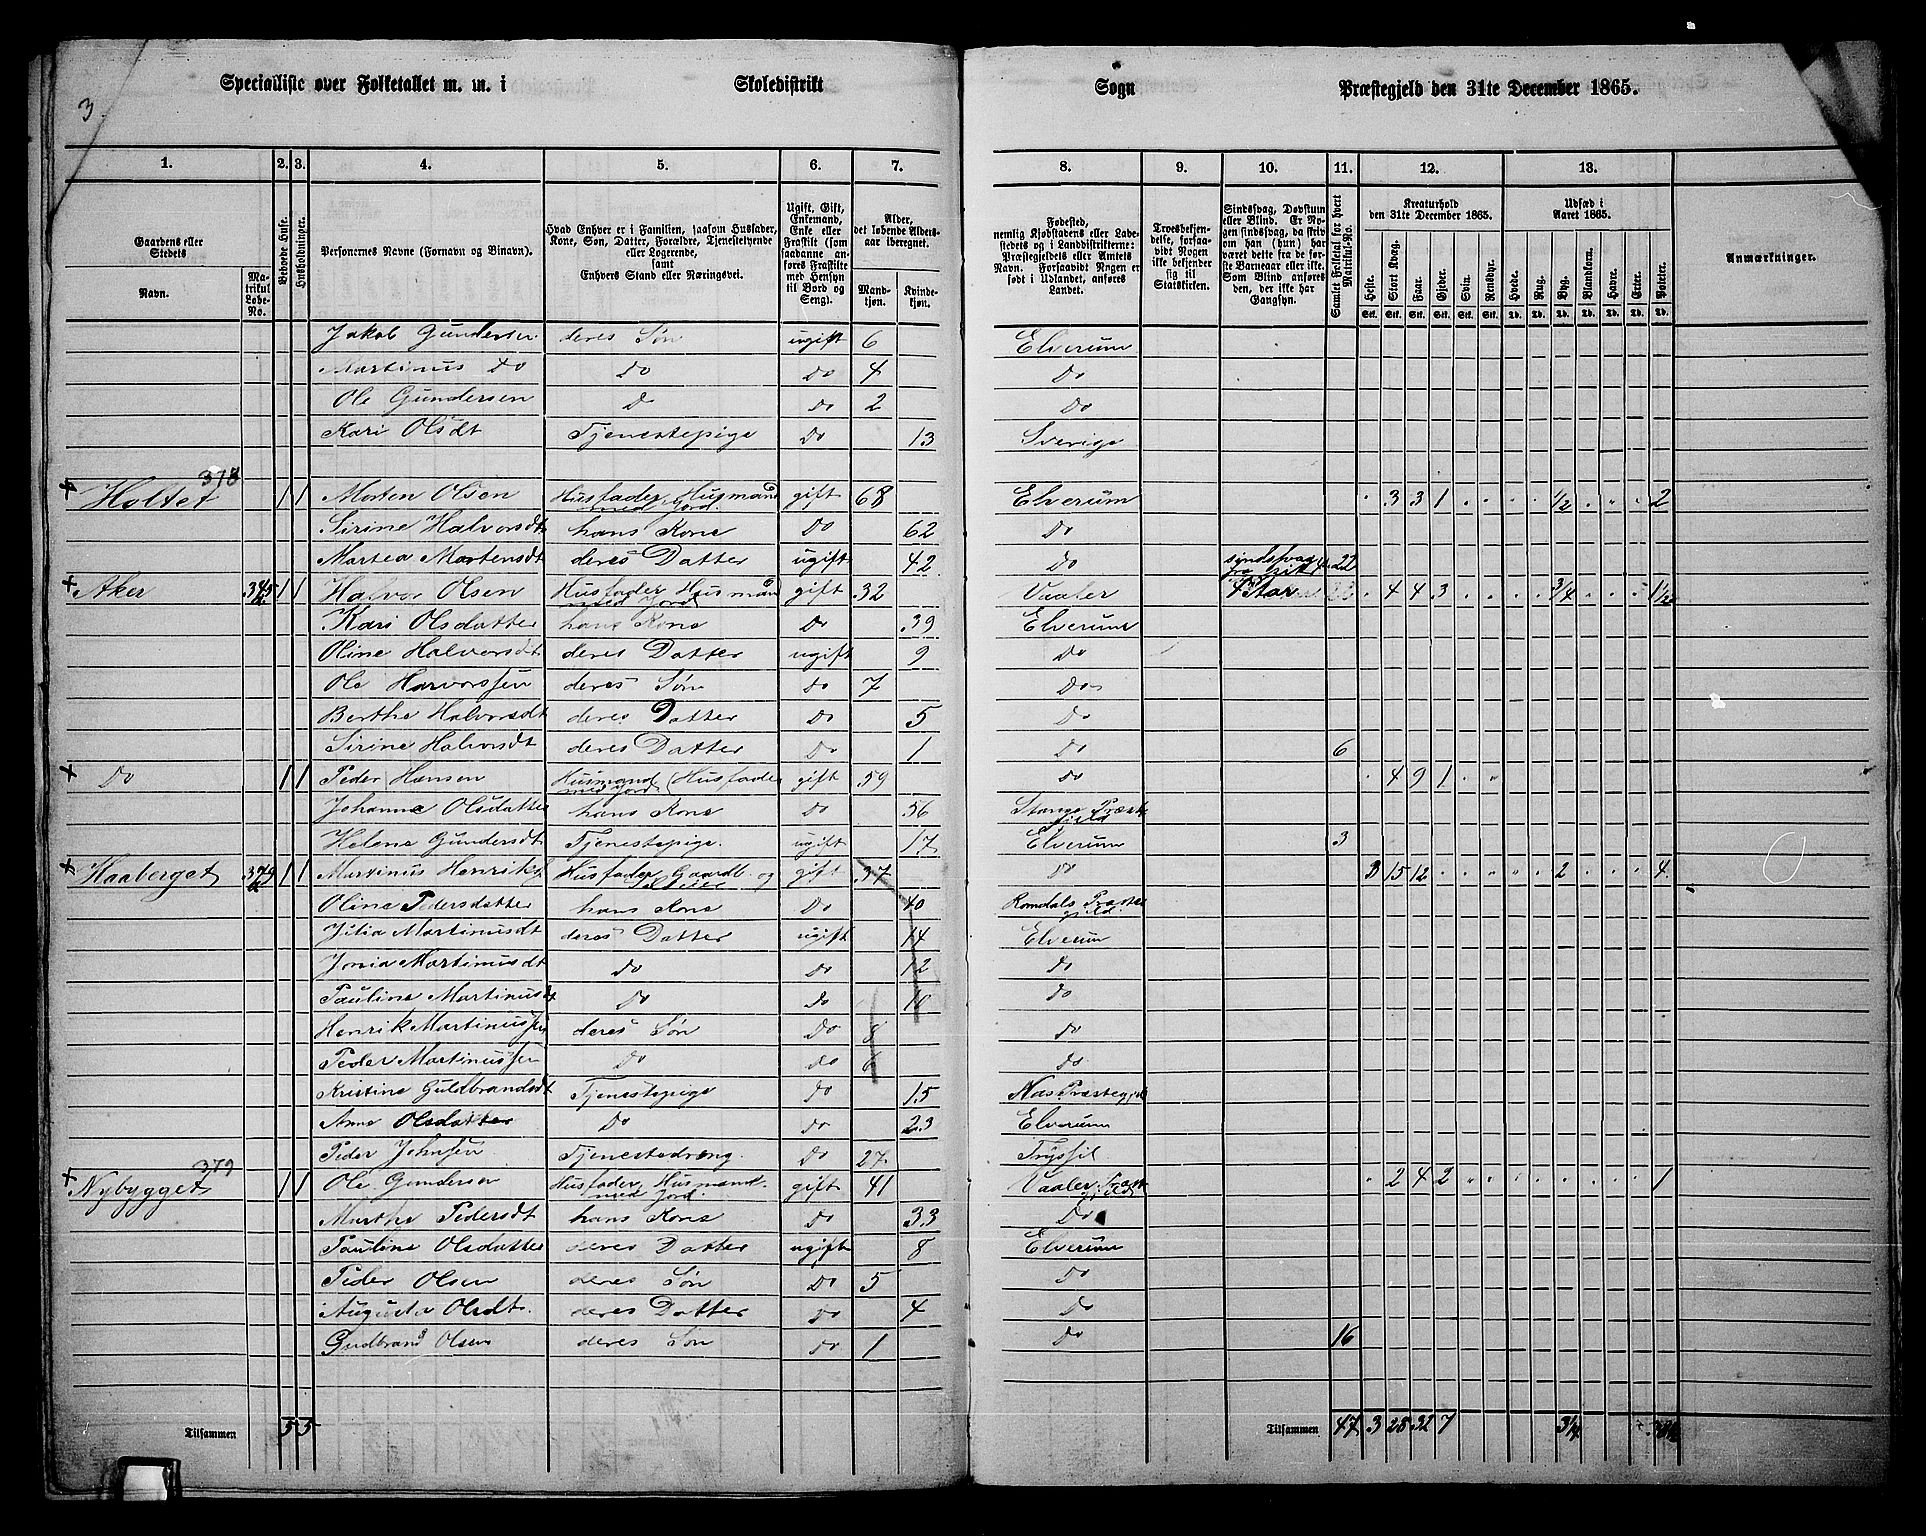 3
Specialliste over Folketallet m. m. i Skoledistrikt Sogn Præstegjeld den 31te December 1865.
1. 2. 3. 4. 5. 6. 7. 8. 9. 10. 11. 12. 13.
Gaardens eller Stedets
Navn.
Matrikul Løbe-No.
Beboede Huse.
Husholdninger.
Personernes Navne (Fornavn og Binavn).
Hvad Enhver er i Familien, saasom Husfader, Kone, Søn, Datter, Forældre, Tjenestetyende eller Logerende, samt Enhvers Stand eller Næringsvei.
Ugift, Gift, Enkemand, Enke eller Fraskilt (som saadanne anføres Fraskilte med Hensyn til Bord og Seng).
Alder, det løbende Aldersaar iberegnet.
Mandkjøn. Kvindekjøn.
Fødested, nemlig Kjøbstadens eller Ladestedets og i Landdistrikterne: Præstegjeldets eller Amtets Navn. Forsaavidt Nogen er født i Udlandet, anføres Landet.
Troesbekjendelse, forsaavidt Nogen ikke bekjender sig til Statskirken.
Sindssvag, Døvstum eller Blind. Er Nogen sindssvag, da skriv om han (hun) har været dette fra de første Barneaar eller ikke. Som Blind anføres den, der ikke har Gangsyn.
Samlet Folketal for hvert Matrikul-No.
Kreaturhold den 31te December 1865.
Heste. Stort Kvæg. Faar. Gjeder. Svin. Rensdyr.
Udsæd i Aaret 1865.
Hvede. Rug. Byg. Blandkorn. Havre. Erter. Poteter.
Anmærkninger.
Jakob Gundersen deres Søn ugift 6 Elverum
Martinus Do Do Do 4 Do
Ole Gundersen Do Do 2 Do
Kari Olsdt Tjenestepige Do 13 Sverige
Holtet 378 1 1 Morten Olsen Husfader, Husmand med Jord. gift 68 Elverum 3 3 1 1/2 2
Sirine Halvorsdt hans Kone Do 62 Do
Martea Martensdt deres Datter ugift 42 Do 22
Aker 345 1 1 Halvor Olsen Husfader Husmand med Jord gift 32 Vaaler 4 4 3 3/4 1 1/2
Kari Olsdatter hans Kone Do 39 Elverum
Oline Halvorsdt deres Datter ugift 9 Do
Ole Halvorssen deres Søn Do 7 Do
Berthe Halvorsdt deres Datter Do 5 Do
Sirine Halvorsdt deres Datter Do 1 Do 6
Do 1 1 Peder Hansen Husmand med Jord (Husfader gift 59 Do 4 9 1
Johanne Olsdatter hans Kone Do 56 Stange Præstegjeld
Helene Gundersdt Tjenestepige. ugift 17 Elverum 3
Haaberget 374 1 1 Martinus Henriks Husfader Gaardb. og gift 37 Do 3 15 12 2 4
Oline Pedersdatter hans Kone Do 40 Romedals Præstegjeld.
Julia Martinusdt deres Datter ugift 14 Elverum
Jonia Martinusdt Do Do 12 Do
Pauline Martinusdt Do Do 10 Do
Henrik Martinussen deres Søn Do 8 Do
Peder Martinussen Do Do 6 Do
Kristine Guldbrandsdt Tjenestepige Do 15 Næs Præstegjeld
Anne Olsdatter Do Do 23 Elverum
Peder Johnsen Tjenestedreng. Do 27 Trysil
Nybygget 379 1 1 Ole Gundersen Husfader, Husmand med Jord. gift 41 Vaaler Præstegjeld 2 4 2 1
Marthe Pedersdt hans Kone Do 33 Do
Pauline Olsdatter deres Datter ugift 8 Elverum
Peder Olsen deres Søn Do 5 Do
Augusta Olsdt. deres Datter Do 4 Do
Gudbrand Olsen deres Søn Do 1 Do 16
Tilsammen 5 5 Tilsammen 47 3 28 32 7 3 1/4